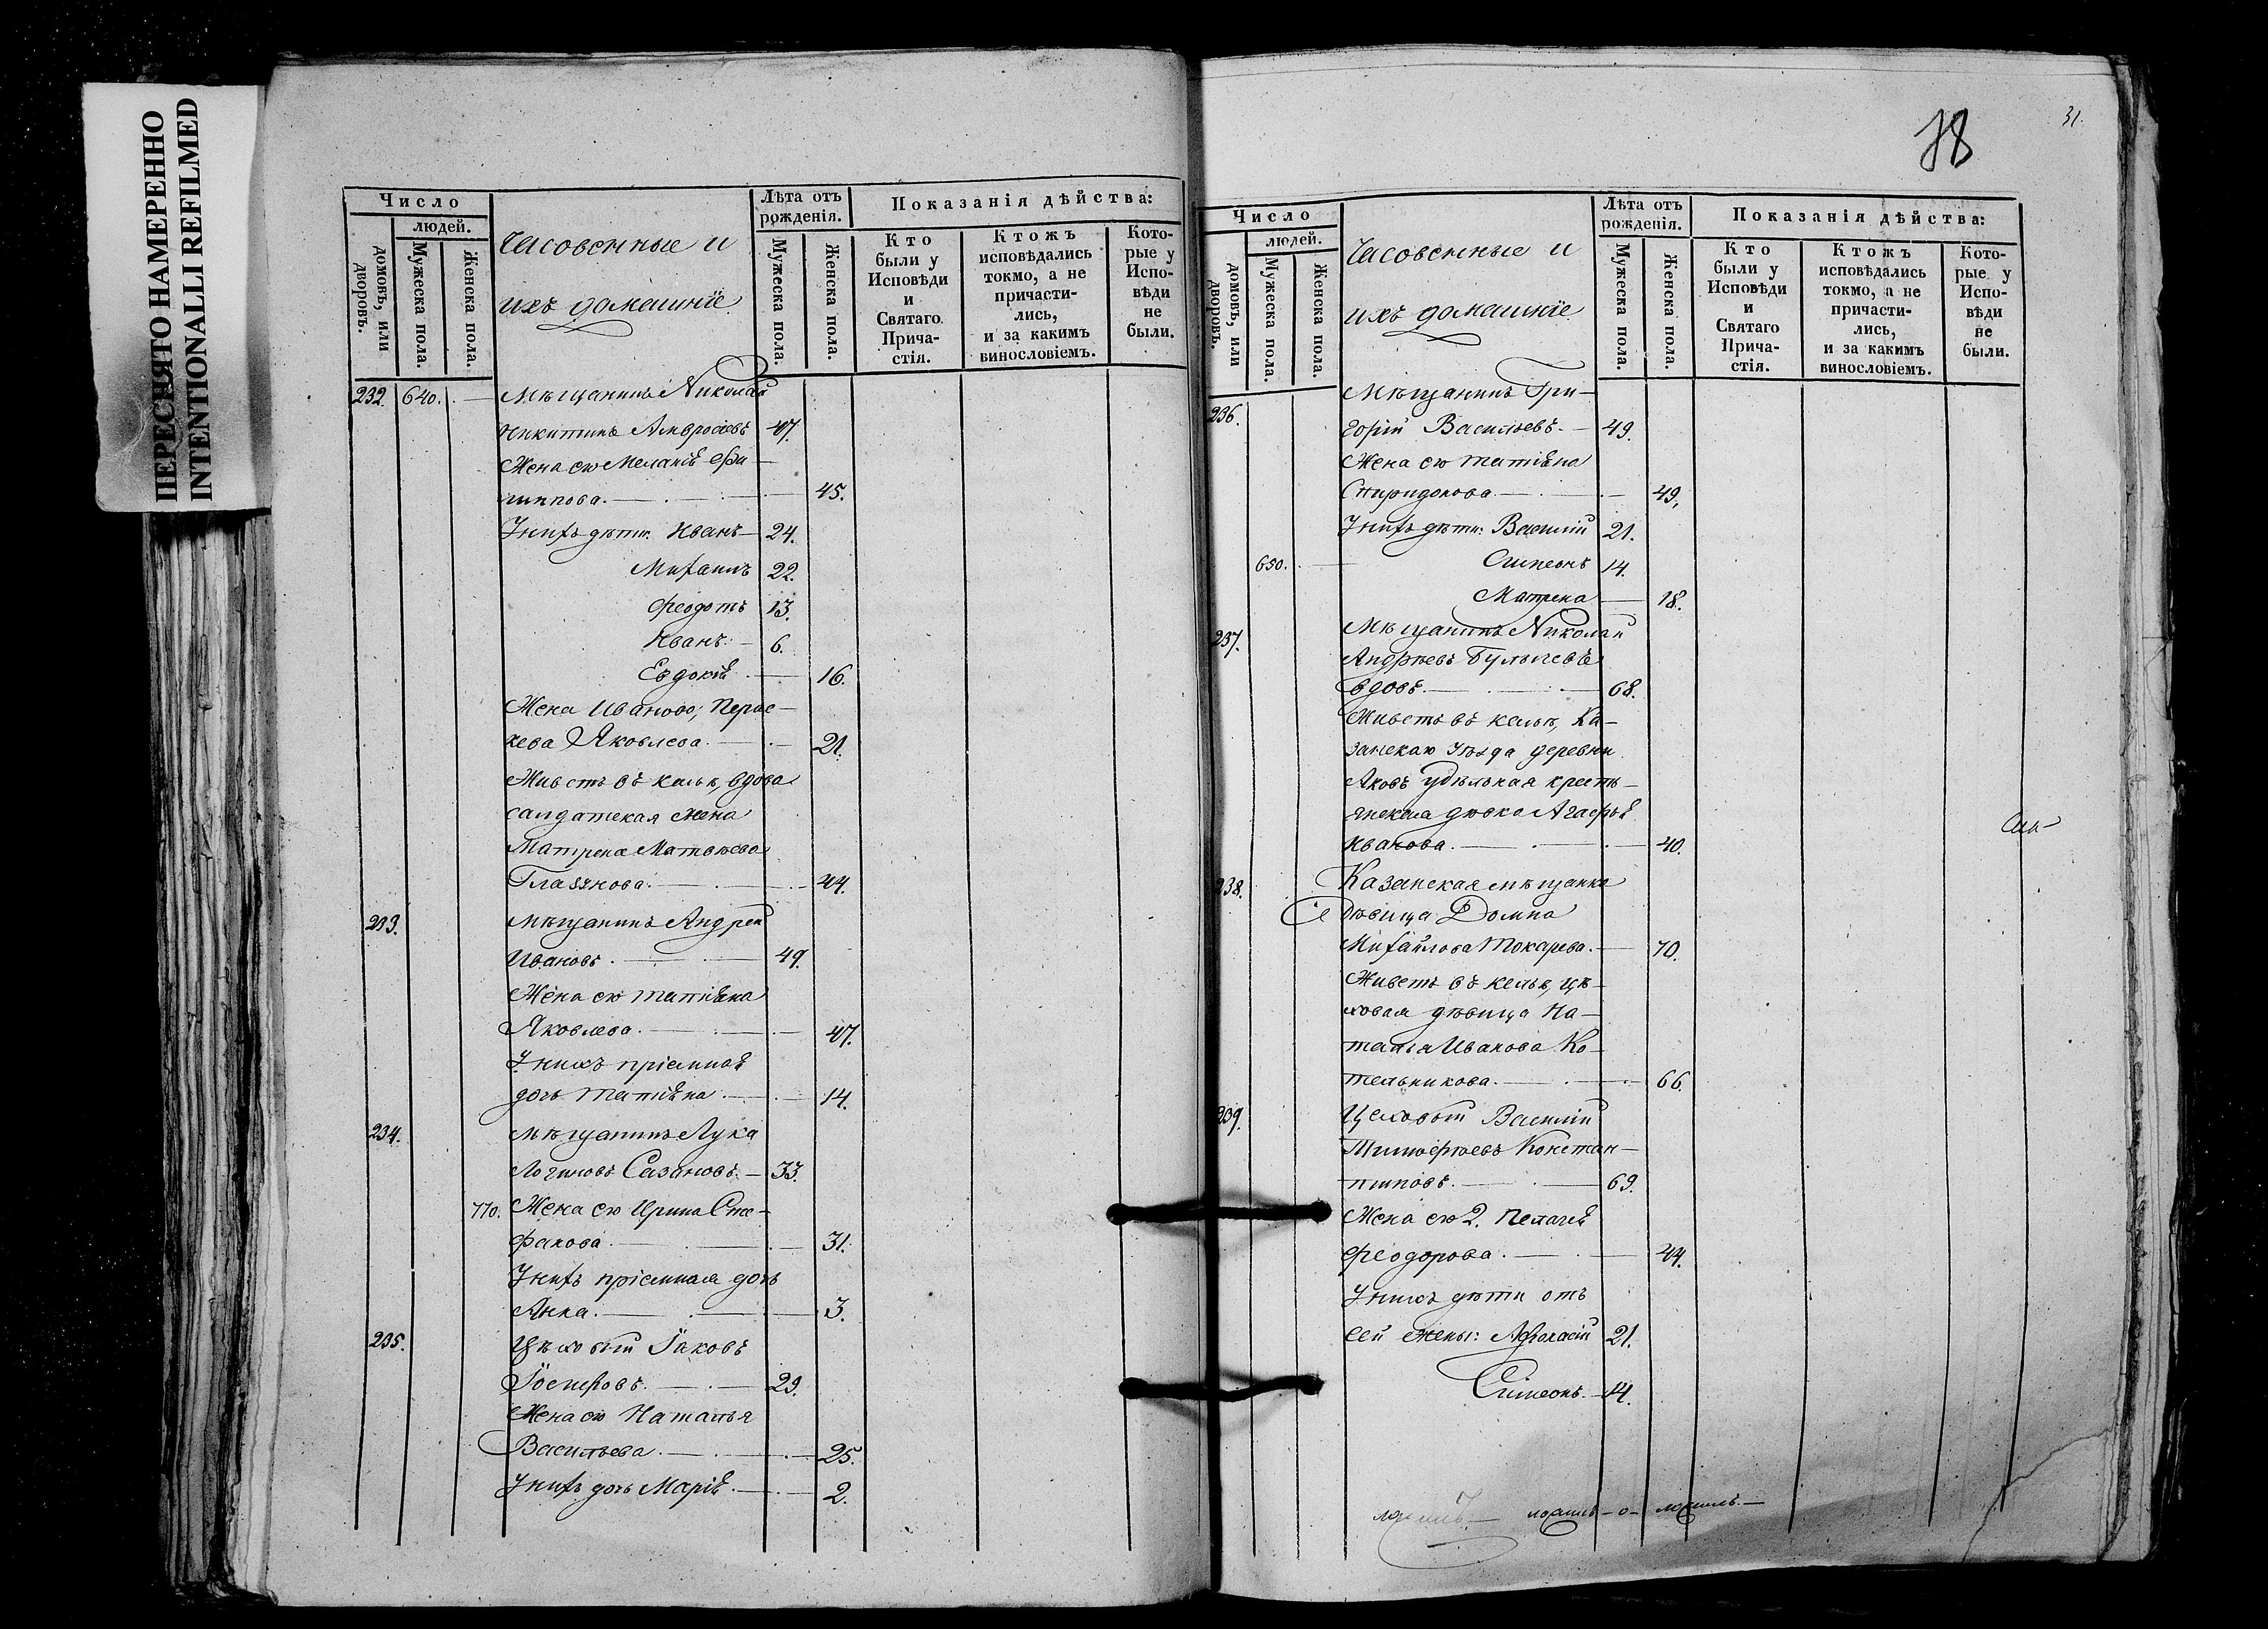 ПЕРЕСНЯТО НАМЕРЕННО
INTENTIONALLI REFILMED
Число
людей.
домовъ, или дворовъ.
Мужеска пола.
Женска пола.
Часовенные и
ихъ домашніе
Лѣта отъ рожденія.
Мужеска пола.
Женска пола.
Показанія дѣйства:
Кто были у Исповѣди и Святаго Прича-стія.
Ктожъ исповѣдались токмо, а не причасти-лись, и за какимъ винословіемъ.
Кото-рые у Испо-вѣди не были.
232. 640. Мѣщанинъ Николай
Никитинъ Амвросіевъ 47.
Жена его Меланія Фи-
липпова. 45.
У нихъ дѣти: Иванъ 24.
Михаилъ 22.
Феодотъ 13.
Иванъ 6.
Евдокія 16.
Жена Иванова, Парас-
кева Яковлева. 21.
Живетъ въ кельѣ, вдова
салдатская жена
Матрена Матвѣева
Глазунова. 44.
233. Мѣщанинъ Андрей
Ивановъ. 49.
Жена его Татіяна
Яковлева. 47.
У нихъ пріемная
дочь Татіяна. 14.
234. Мѣщанинъ Лука
Логиновъ Сазановъ. 33.
770. Жена его Ирина Сте-
фанова. 31.
У нихъ пріемная дочь
Анна. 3.
235. Цѣховый Іаковъ
Іосифовъ. 29.
Жена его Наталья
Васильева. 25.
У нихъ дочь Марія. 2.
78
31.
Число
людей.
домовъ, или дворовъ.
Мужеска пола.
Женска пола.
Часовенные и
ихъ домашніе
Лѣта отъ рожденія.
Мужеска пола.
Женска пола.
Показанія дѣйства:
Кто были у Исповѣди и Святаго Прича-стія.
Ктожъ исповѣдались токмо, а не причасти-лись, и за какимъ винословіемъ.
Кото-рые у Испо-вѣди не были.
236. Мѣщанинъ Гри-
горій Васильевъ. 49.
Жена его Татіяна
Спиридонова. 49.
У нихъ дѣти: Василій 21.
650. Симеонъ 14.
Матрена 18.
237. Мѣщанинъ Николай
Андреевъ Булыгевъ
вдовъ. 68.
Живетъ въ кельѣ, Ка-
занскаго уѣзда деревни
удѣльная кресть-
янская дѣвка Агафья
Иванова. 40.
238. Казанская мѣщанка
дѣвица Домна
Михайлова Токарева. 70.
Живетъ въ кельѣ, цѣ-
ховая дѣвица На-
талья Иванова Ко-
тельникова. 66.
239. Цеховый Василій
Тимофѣевъ Констан-
тиновъ. 69.
Жена его 2. Пелагея
Феодорова. 44.
У нихъ дѣти отъ
сей жены: Афанасій 21.
Симеонъ. 14.